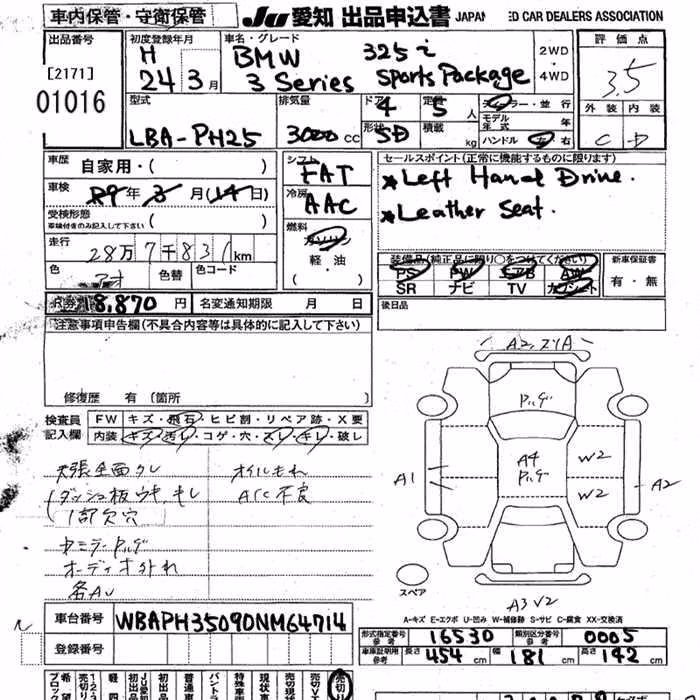 車内保管・守衛保管 JU 愛知 出品申込書 JAPAN ED CAR DEALERS ASSOCIATION
出品番号 初度登録年月 車名・グレード 評価点
[2171]
01016
H 24年 3月
BMW 325i
3 Series Sports Package
2WD
4WD
3.5
外装 内装
C D
型式 排気量 ドア 定員 ディーラー・並行
LBA-PH25 3000cc 4 5人
モデル年式
形状 5D 積載 kg ハンドル 左・右
車歴 自家用・( )
シフト FAT
セールスポイント(正常に機能するものに限ります)
*Left Hand Drive.
*Leather Seat.
車検 R9年 3月(14日)
冷房 AAC
受検形態
車検付きのみ記入して下さい ( )
燃料 ガソリン
軽・油
( )
走行 28万7千831km
色 アオ 色替 色コード
装備品(純正品に限り○をつけてください) 新車保証書
PS PW エアB AW 有・無
SR ナビ TV カワシート
R券 18,870円 名変通知期限 月 日
後日品
注意事項申告欄(不具合内容等は具体的に記入して下さい)
修復歴 有 (箇所
検査員記入欄 FW キズ・飛石・ヒビ割・リペア跡・X要
内装 キズ・汚レ・コゲ・穴・スレ・キレ・破レ
天張全面タレ オイルもれ
ダッシュ板ウキ、キレ A/C不良
1部欠穴
オーディオ外れ
各AU
A1 A4 W2 W2 A2
A3 V2
スペア
A-キズ E-エクボ U-凹み W-補修跡 S-サビ C-腐食 XX-交換済
車台番号 WBAPH35090NM64714
登録番号
形式指定番号 参考 16530 類別区分番号 参考 0005
車庫証明用 参考 長さ 454cm 幅 181cm 高さ 142cm